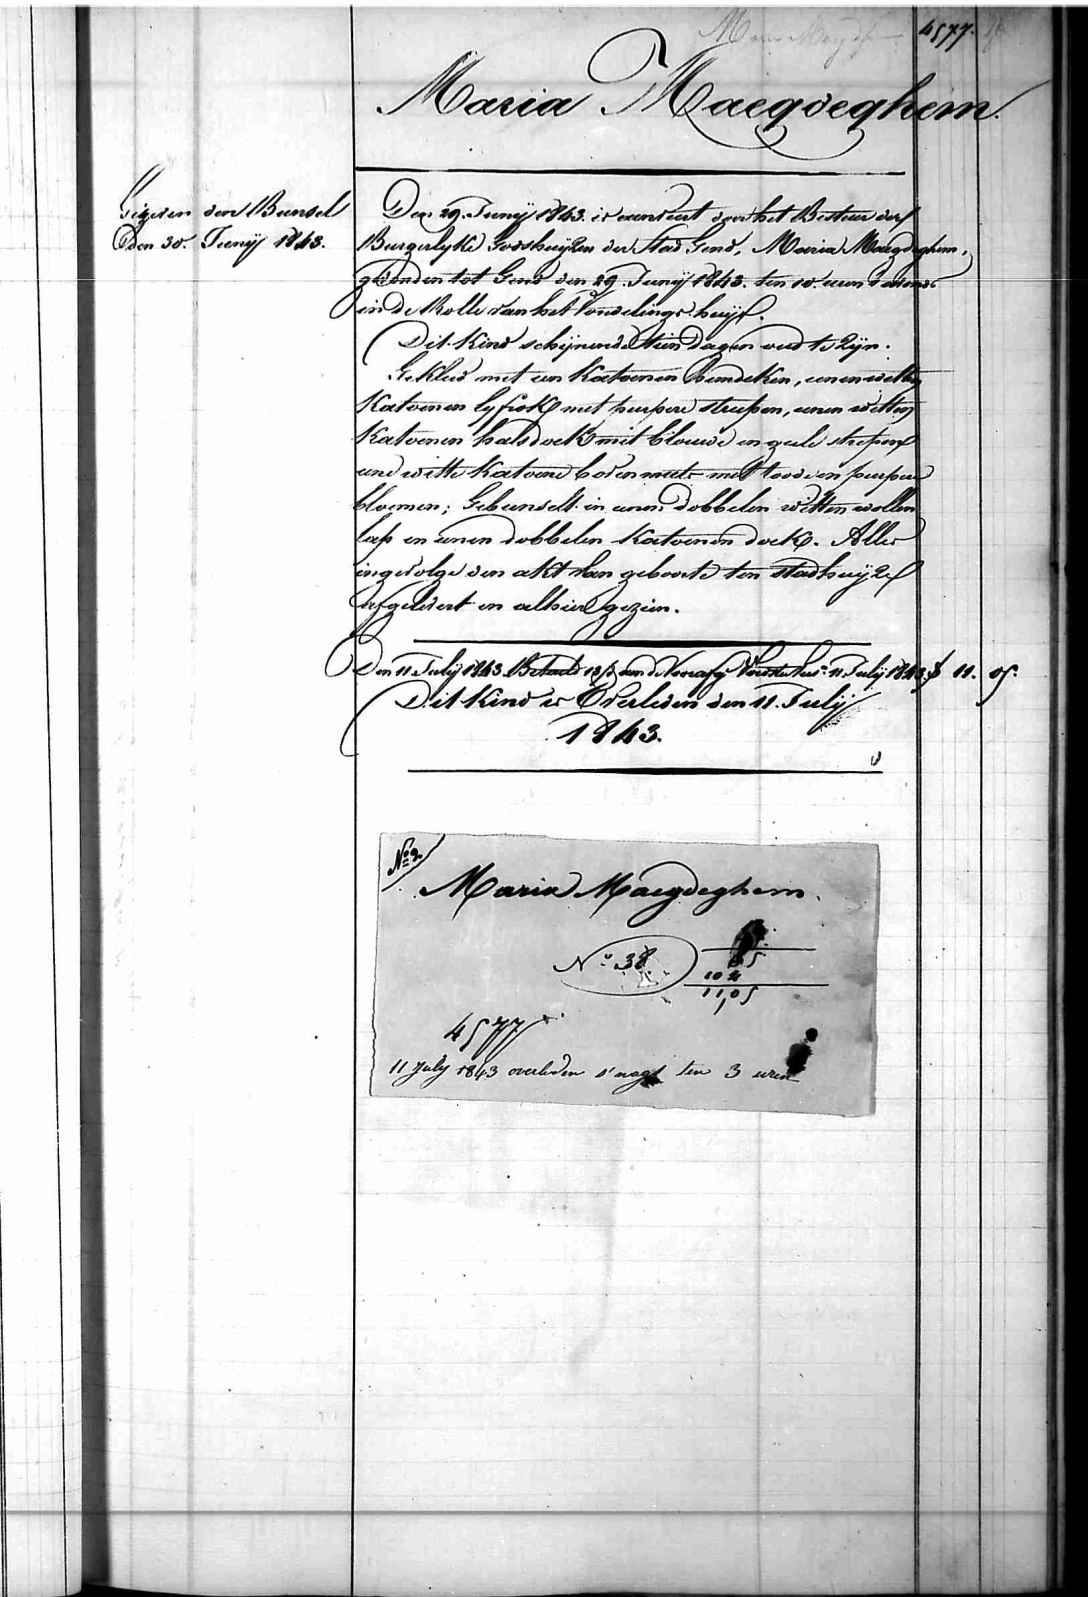 4577.
Maria Maegdeghem.
Gegeven den Bunsel
den 30. Junij 1843.
Den 29. Junij 1843. is aenveert door het Bestuer der
Burgerlyke Godshuijzen der Stad Gend, Maria Maegdeghem,
gevonden tot Gend den 29. Junij 1843. ten 10. uren s'avonds
in de Rolle van het Vondelings-huijs.
Dit Kind schijnende tien dagen oud te Zijn.
Gekleed met een Katoenen hemdeken, eenen witten
Katoenen lyfrok met purpere streepen, eenen witten
Katoenen halsdoek met blauwe en geele strepen
eene witte Katoene bovenmuts met roode en purpere
bloemen; Gebunselt in eenen dobbelen witten wollen
lap en eenen dobbelen Katoenen doek. Alles
ingevolge den akt van geboorte ten stadhuijze
afgelevert en alhier gezien.
Den 11 Julij 1843 Betaeld 11 Julij 1843. f 11. 05.
Dit Kind is Overleden den 11. Julij
1843.
No. 2.
Maria Maegdeghem.
No. 38
10 2
11,05
4577
11 July 1843 overleden s'nagt ten 3 uren